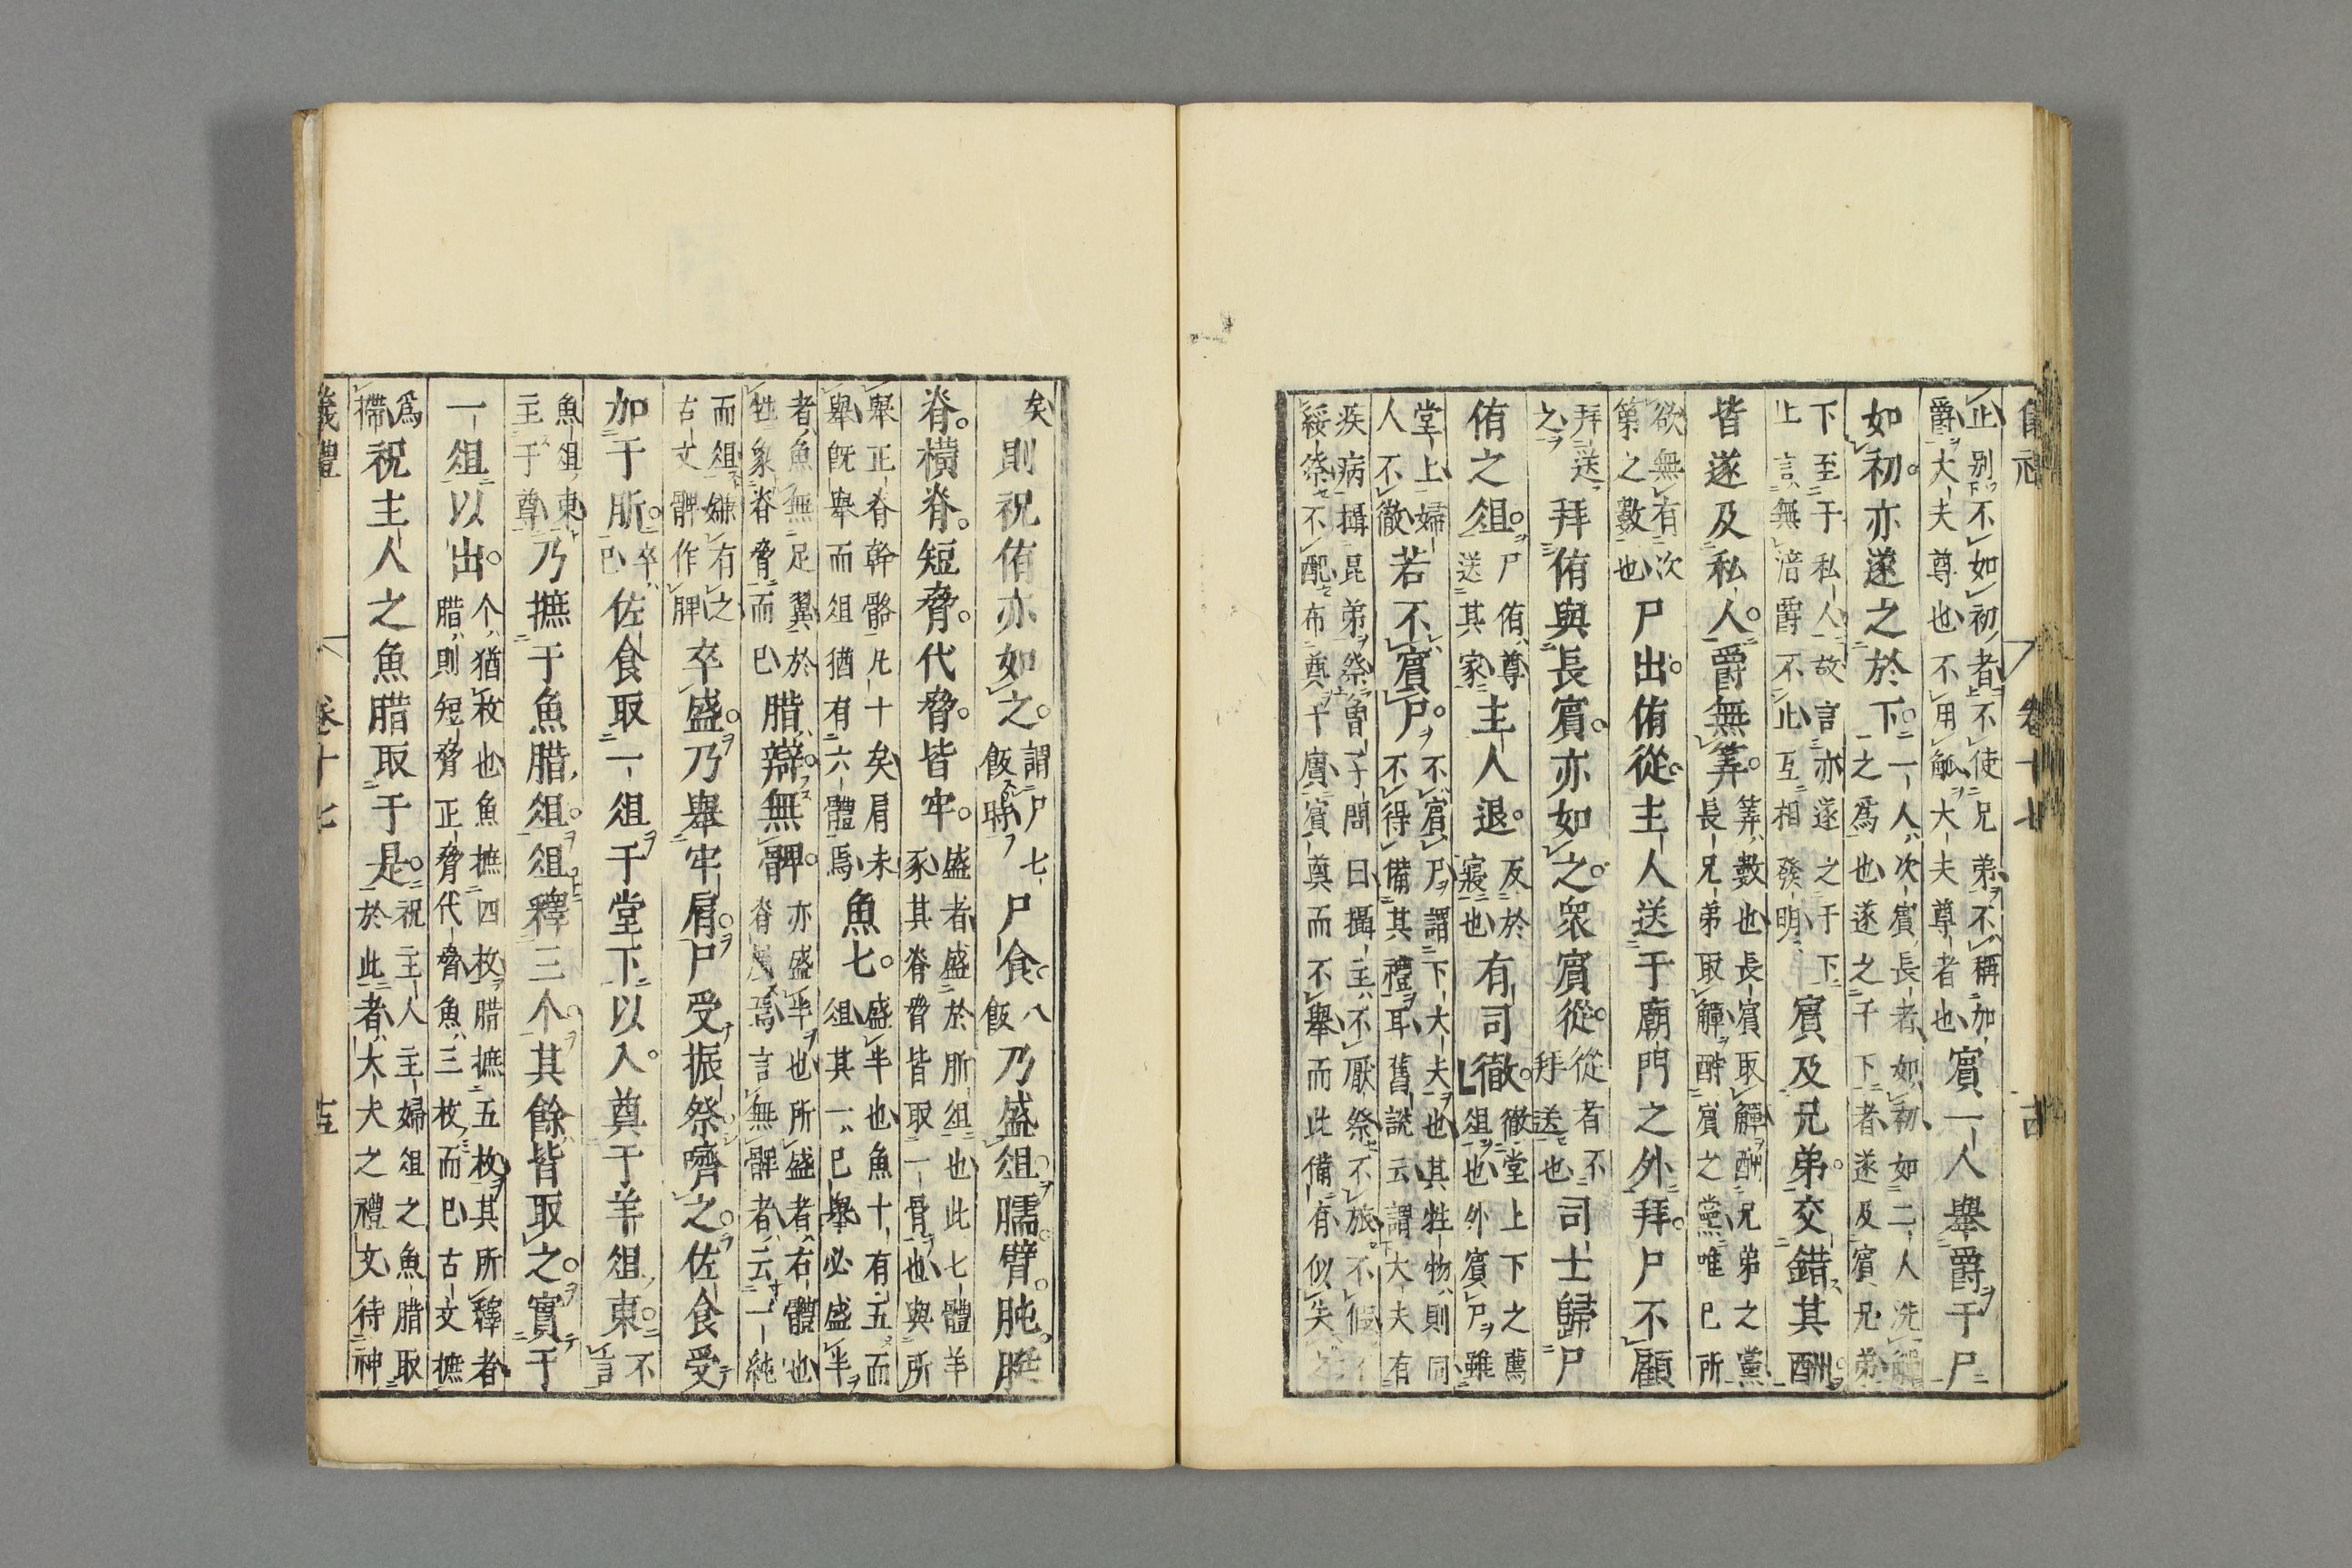 卷十七
止別不如初者不使兄弟不稱加
爵大夫尊也不用觚大夫尊者也
賓一人舉爵于尸
如初亦遂之於下
一人次賓長者如初如二人洗觶
之爲也遂之于下者遂及賓兄弟
下至于私人故言亦遂之于下
上言無湇爵不止互相發明
賓及兄弟交錯其酬
皆遂及私人爵無筭
筭數也長賓取觶酬兄弟之黨
長兄弟取觶酬賓之黨唯已所
欲無有次
第之數也
尸出侑從主人送于廟門之外拜尸不顧
拜送
之
拜侑與長賓亦如之衆賓從
從者不
拜送也
司士歸尸
侑之俎
尸侑尊
送其家
主人退
反於
寢也
有司徹
徹堂上下之薦
俎也外賓尸雖
堂上婦
人不徹
若不賓尸
不賓尸謂下大夫也其牲物則同
不得備其禮耳舊說云謂大夫有
疾病攝昆弟祭曾子問曰攝主不厭祭不旅不假
綏祭不配布奠于賓賓奠而不舉而此備有似失之
矣
則祝侑亦如之
謂尸七
飯時
尸食
八
飯
乃盛俎臑臂肫脡
脊橫脊短脅代脅皆牢
盛者盛於肵俎也此七體羊
豕其脊脅皆取一骨也與所
舉正脊幹骼凡十矣肩未
舉既舉而俎猶有六體焉
魚七
盛半也魚十有五而
俎其一已舉必盛半
者魚無足翼於
牲象脊脅而已
腊辯無髀
亦盛半也所盛者右體也
脊屬焉言無髀者云一純
而俎嫌有之
古文髀作脾
卒盛乃舉牢肩尸受振祭嚌之佐食受
加于肵
卒
已
佐食取一俎于堂下以入奠于羊俎東
不
言
魚俎東
主于尊
乃摭于魚腊俎俎釋三个其餘皆取之實于
一俎以出
个猶枚也魚摭四枚腊摭五枚其所釋者
腊則短脅正脅代脅魚三枚而已古文摭
爲
摕
祝主人之魚腊取于是
祝主人主婦俎之魚腊取
於此者大夫之禮文待神
儀禮 卷十七 十五